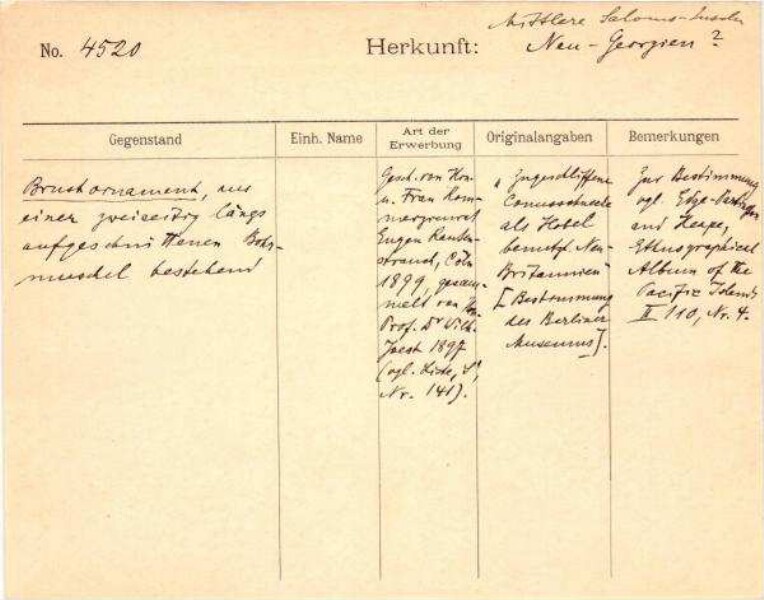 Mittlere Salomo-Inseln
No. 4520
Herkunft:
Neu-Georgien?
Gegenstand
Einh. Name
Art der
Erwerbung
Originalangaben
Bemerkungen
Brustornament, aus
einer zweiseitig längs
aufgeschnittenen Bohr-
muschel bestehend
Gesch. von Herrn
u. Frau Kom-
merzienrat
Eugen Rauten-
strauch, Cöln
1899, gesam-
melt von Hrn.
Prof. Dr Wilh.
Joest 1897
(vgl. Liste, S,
Nr. 141).
„Zugeschliffene
Conusschnecke
als Hobel
benutzt. Neu-
Britannien"
[Bestimmung
des Berliner
Museums].
Zur Bestimmung
vgl. Edge-Partington
and Heape,
Ethnographical
Album of the
Pacific Islands
II 110, Nr. 4.